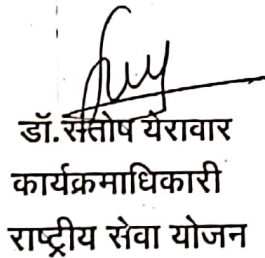 डॉ.संतोष येरावार
कार्यक्रमाधिकारी
राष्ट्रीय सेवा योजन